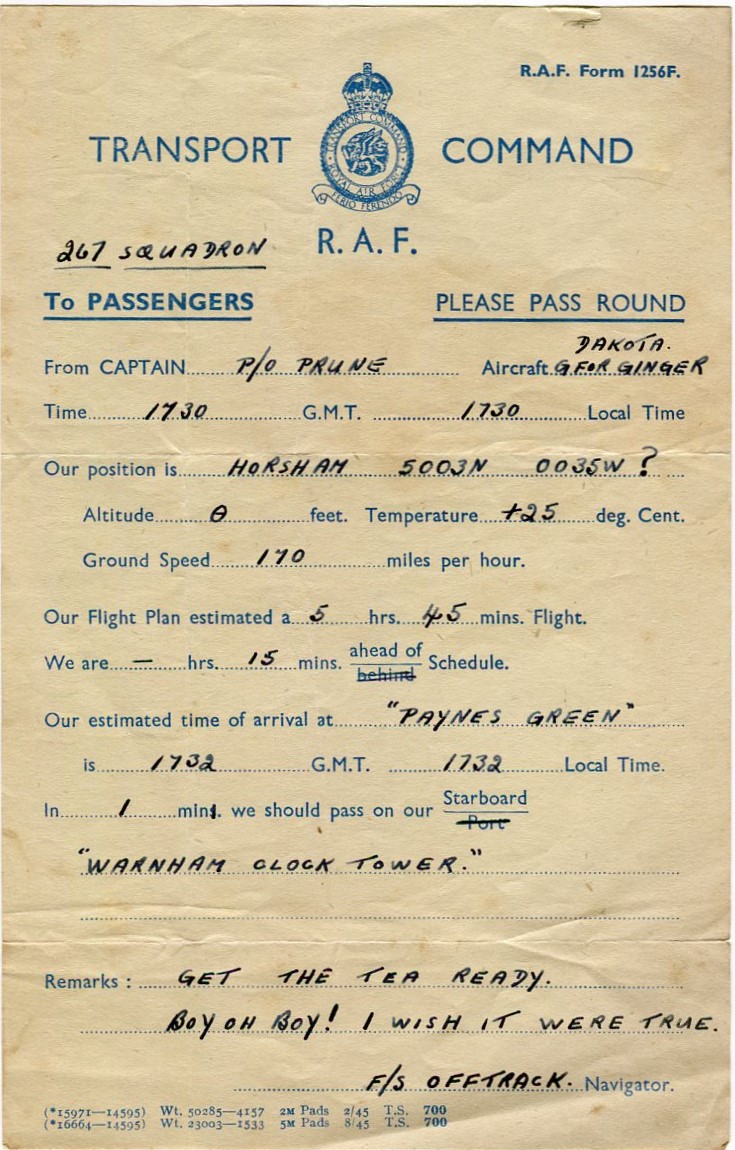 R.A.F. Form 1256F.
TRANSPORT COMMAND
TRANSPORT COMMAND
ROYAL AIR FORCE
FERIO FERENDO
R. A. F.
267 SQUADRON
To PASSENGERS PLEASE PASS ROUND
DAKOTA.
From CAPTAIN P/O PRUNE Aircraft G FOR GINGER
Time 1730 G.M.T. 1730 Local Time
Our position is HORSHAM 5003N 0035W ?
Altitude 0 feet. Temperature +25 deg. Cent.
Ground Speed 170 miles per hour.
Our Flight Plan estimated a 5 hrs. 45 mins. Flight.
We are — hrs. 15 mins. ahead of behind Schedule.
Our estimated time of arrival at "PAYNES GREEN"
is 1732 G.M.T. 1732 Local Time.
In 1 mins. we should pass on our Starboard Port
"WARNHAM CLOCK TOWER."
Remarks : GET THE TEA READY.
BOY OH BOY! I WISH IT WERE TRUE.
F/S OFFTRACK. Navigator.
(*15971—14595) Wt. 50285—4157 2M Pads 2/45 T.S. 700
(*16664—14595) Wt. 23003—1533 5M Pads 8/45 T.S. 700